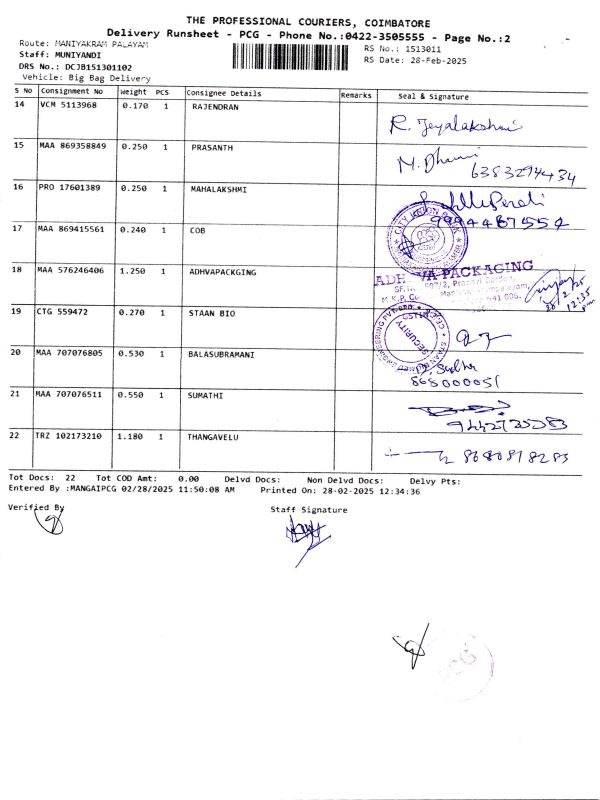 THE PROFESSIONAL COURIERS, COIMBATORE
Delivery Runsheet - PCG - Phone No.:0422-3505555 - Page No.:2
Route: MANIYAKRAM PALAYAM
Staff: MUNIYANDI
DRS No.: DCJB151301102
Vehicle: Big Bag Delivery
RS No.: 1513011
RS Date: 28-Feb-2025
S No Consignment No Weight PCS Consignee Details Remarks Seal & Signature
14 VCM 5113968 0.170 1 RAJENDRAN R. Jeyalakshmi
15 MAA 869358849 0.250 1 PRASANTH M. Dhani 6383294434
16 PRO 17601389 0.250 1 MAHALAKSHMI
17 MAA 869415561 0.240 1 COB
CITY UNION BANK
18 MAA 576246406 1.250 1 ADHVAPACKGING
PACKAGING
641 006.
12:35
19 CTG 559472 0.270 1 STAAN BIO
SECURITY
20 MAA 707076805 0.530 1 BALASUBRAMANI
868000051
21 MAA 707076511 0.550 1 SUMATHI 9442735283
22 TRZ 102173210 1.180 1 THANGAVELU
Tot Docs: 22 Tot COD Amt: 0.00 Delvd Docs: Non Delvd Docs: Delvy Pts:
Entered By :MANGAIPCG 02/28/2025 11:50:08 AM Printed On: 28-02-2025 12:34:36
Verified By
Staff Signature
PCG